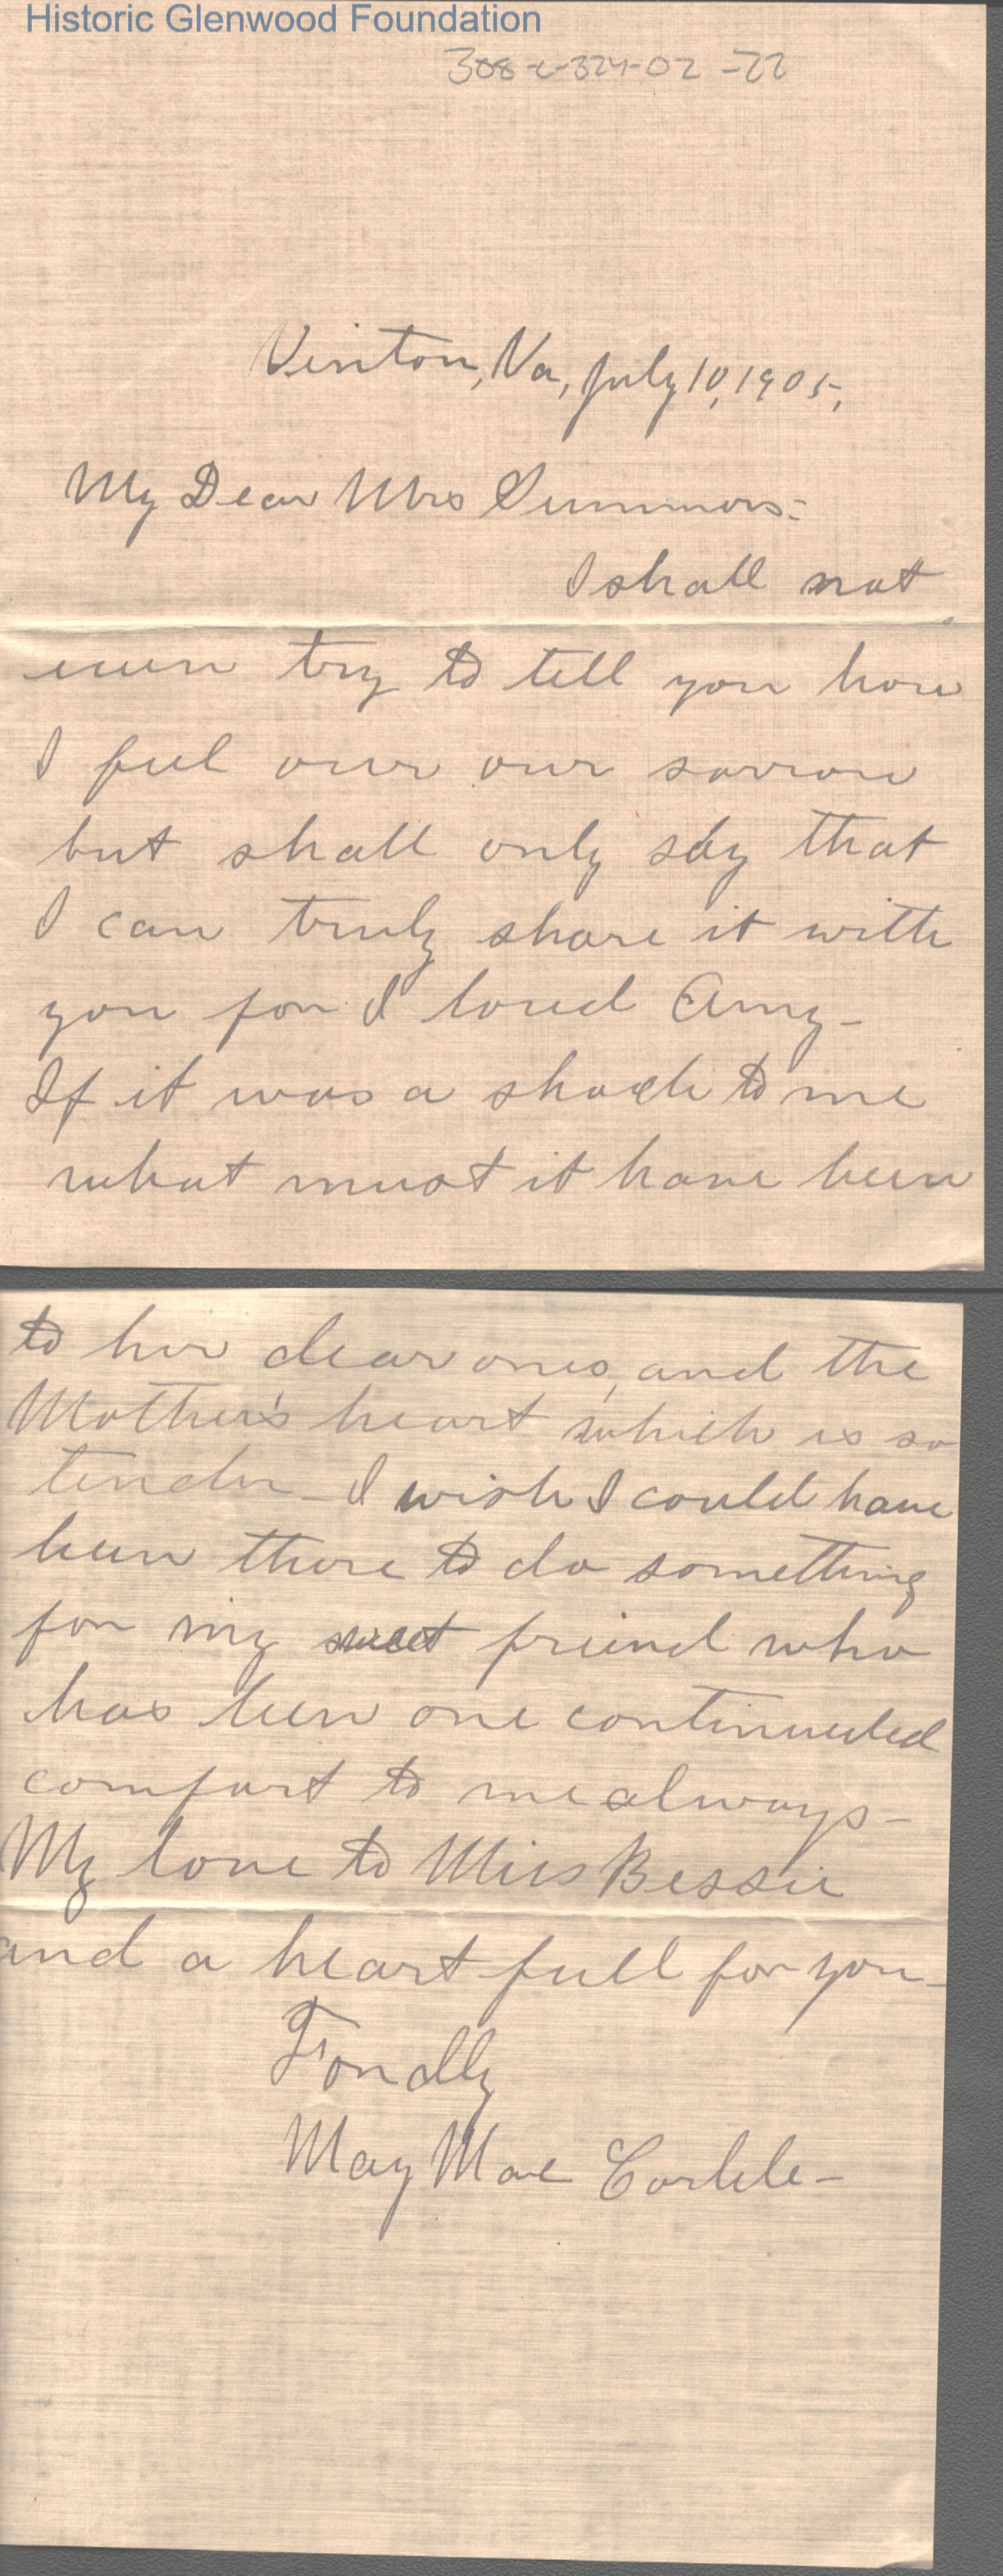 Historic Glenwood Foundation
308-2-324-02-22
Vinton, Va, July 10, 1905,
My Dear Mrs Summers:-
I shall not
even try to tell you how
I feel over our sorrow
but shall only say that
I can truly share it with
you for I loved Amy-
If it was a shock to me
what must it have been
to her dear ones, and the
Mother's heart which is so
tender - I wish I could have
been there to do something
for my sweet friend who
has been one continueled
comfort to me always-
My love to Miss Bessie
and a heart full for you-
Fondly
May Mae